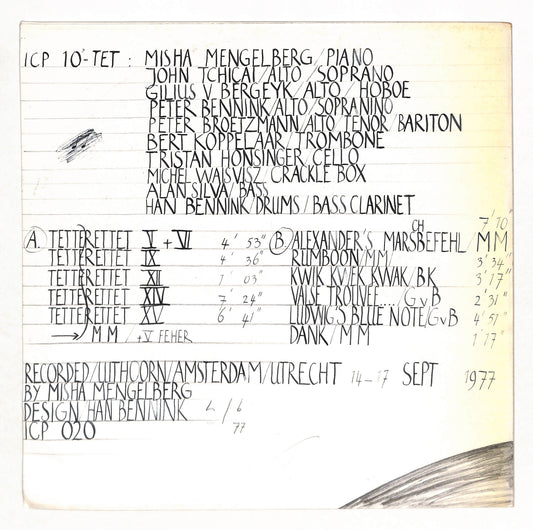 ICP 10'-TET : MISHA MENGELBERG / PIANO
JOHN TCHICAI / ALTO / SOPRANO
GILIUS V. BERGEYK / ALTO / HOBOE
PETER BENNINK / ALTO / SOPRANINO
PETER BROETZMANN / ALTO / TENOR / BARITON
BERT KOPPELAAR / TROMBONE
TRISTAN HONSINGER / CELLO
MICHEL WAISVISZ / CRACKLE BOX
ALAN SILVA / BASS
HAN BENNINK / DRUMS / BASS CLARINET
A. TETTERETTET V + VI 4' 53"
TETTERETTET IX 4' 36"
TETTERETTET XII 1' 03"
TETTERETTET XIV 7' 24"
TETTERETTET XV 6' 41"
→ MM / + V FEHER
B. ALEXANDER'S MARSCHBEFEHL / MM 7' 10"
RUMBOON / MM / 3' 34"
KWIK KWEK KWAK / BK 3' 17"
VALSE TROUVEE.... / GvB 2' 31"
LUDWIG'S BLUE NOTE / GvB 4' 51"
DANK / MM 1' 17"
RECORDED / UITHOORN / AMSTERDAM / UTRECHT 14-17 SEPT 1977
BY MISHA MENGELBERG
DESIGN HAN BENNINK 77
ICP 020